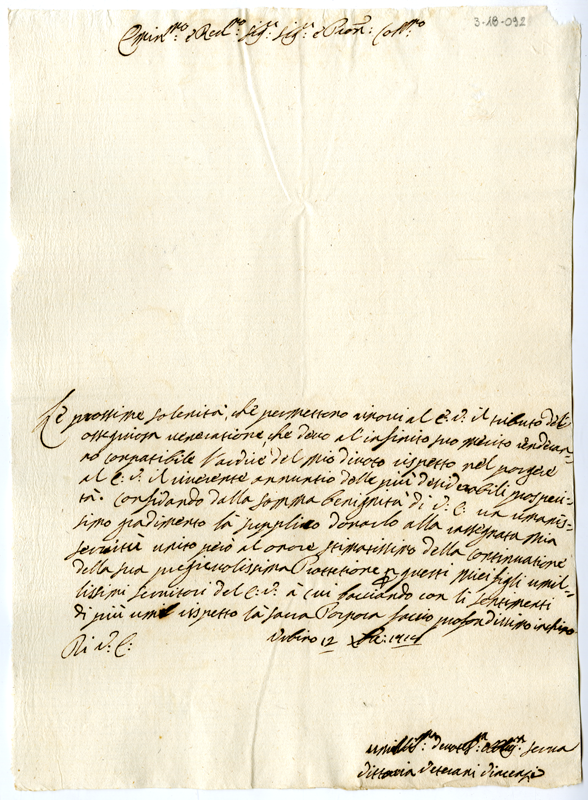 3-18-092
Emin.mo e Rev.mo Sig.r Sig.r e Pron.e Coll.mo
Le prossime solenità, che permettono rinovi al E.V. il tributo del
ossequiosa veneratione, che devo al'infinito suo merito rendean-
no compatibile l'ardire del mio divoto rispetto nel porgere
al E.V. il riverente annuntio delle più desiderabili prosperi-
tà. Confidando dalla somma benignità di V.E. un umanis-
simo gradimento la supplico donarlo alla rassegnata mia
servitù unito però al onore stimatissimo della continuatione
della sua pregievolissima Protetione p questi miei figli umil-
lissimi servitori del E.V. à cui bacciando con li sentimenti
di più umil rispetto la sacra Porpora faccio profondissimo inchino
Di V.E.
Urbino 12 Xbre: 1714
umill.ma devotis.ma obblig.ma serva
Vittoria Veterani